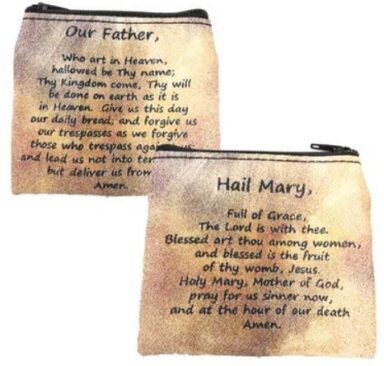 Our Father,
Who art in Heaven,
hallowed be Thy name;
Thy Kingdom come, Thy will
be done on earth as it is
in Heaven. Give us this day
our daily bread; and forgive us
our trespasses as we forgive
those who trespass us;
and lead us not into
but deliver us from
Amen.
Hail Mary,
Full of Grace,
The Lord is with thee.
Blessed art thou among women,
and blessed is the fruit
of thy womb, Jesus.
Holy Mary, Mother of God,
pray for us sinner now,
and at the hour of our death
Amen.